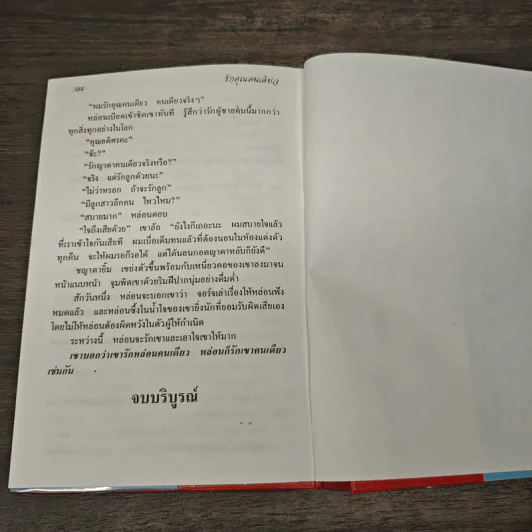 384
รักคุณคนเดียว
“ผมรักคุณคนเดียว คนเดียวจริงๆ”
หล่อนเบียดเข้าชิดเขาทันที รู้สึกว่ารักผู้ชายคนนี้มากกว่า
ทุกสิ่งทุกอย่างในโลก
“คุณอดิศรคะ”
“จ๊ะ?”
“รักญาดาคนเดียวจริงหรือ?”
“จริง แต่รักลูกด้วยนะ”
“ไม่ว่าหรอก ถ้าจะรักลูก”
“มีลูกสาวอีกคน ไหวไหม?”
“สบายมาก” หล่อนตอบ
“ใจถึงเสียด้วย” เขาล้อ “ยังไงก็เถอะนะ ผมสบายใจแล้ว
ที่เราเข้าใจกันเสียที ผมเบื่อเต็มทนแล้วที่ต้องนอนในห้องแต่งตัว
ทุกคืน จะให้ผมรอก็รอได้ แต่ได้นอนกอดญาดาหลับก็ยังดี”
ชญาดายิ้ม เขย่งตัวขึ้นพร้อมกับเหนี่ยวคอของเขาลงมาจน
หน้าแนบหน้า จูบพิตเขาด้วยริมฝีปากนุ่มอย่างดื่มด่ำ
สักวันหนึ่ง หล่อนจะบอกเขาว่า จอร์จเล่าเรื่องให้หล่อนฟัง
หมดแล้ว และหล่อนซึ้งในน้ำใจของเขายิ่งนักที่ยอมรับผิดเสียเอง
โดยไม่ให้หล่อนต้องผิดหวังในตัวผู้ให้กำเนิด
ระหว่างนี้ หล่อนจะรักเขาและเอาใจเขาให้มาก
เขาบอกว่าเขารักหล่อนคนเดียว หล่อนก็รักเขาคนเดียว
เช่นกัน
จบบริบูรณ์